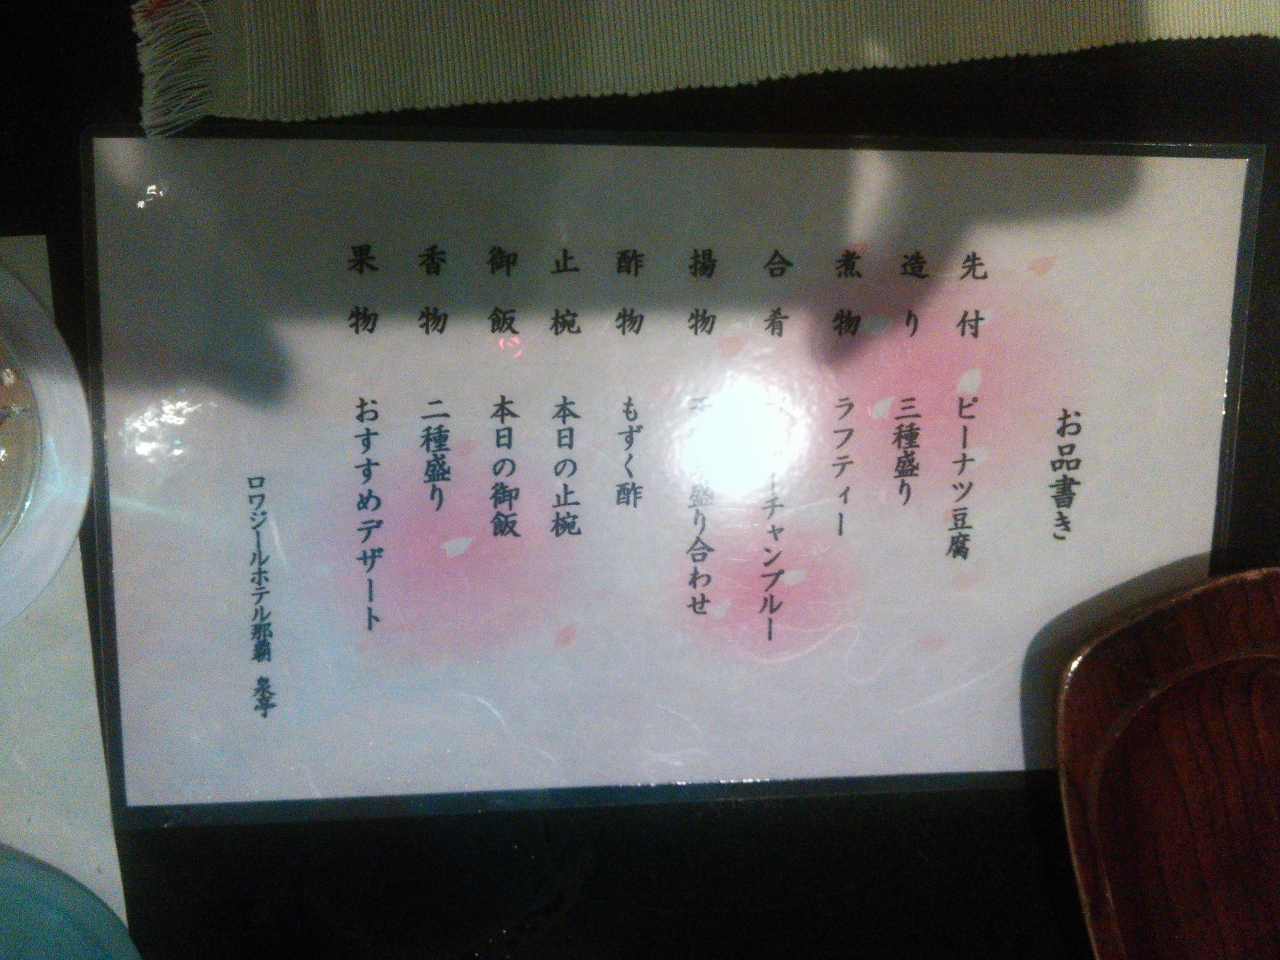 お品書き
先付 ピーナツ豆腐
造り 三種盛り
煮物 ラフティー
合肴 ーチャンプルー
揚物 盛り合わせ
酢物 もずく酢
止椀 本日の止椀
御飯 本日の御飯
香物 二種盛り
果物 おすすめデザート
ロワジールホテル那覇 泉亭